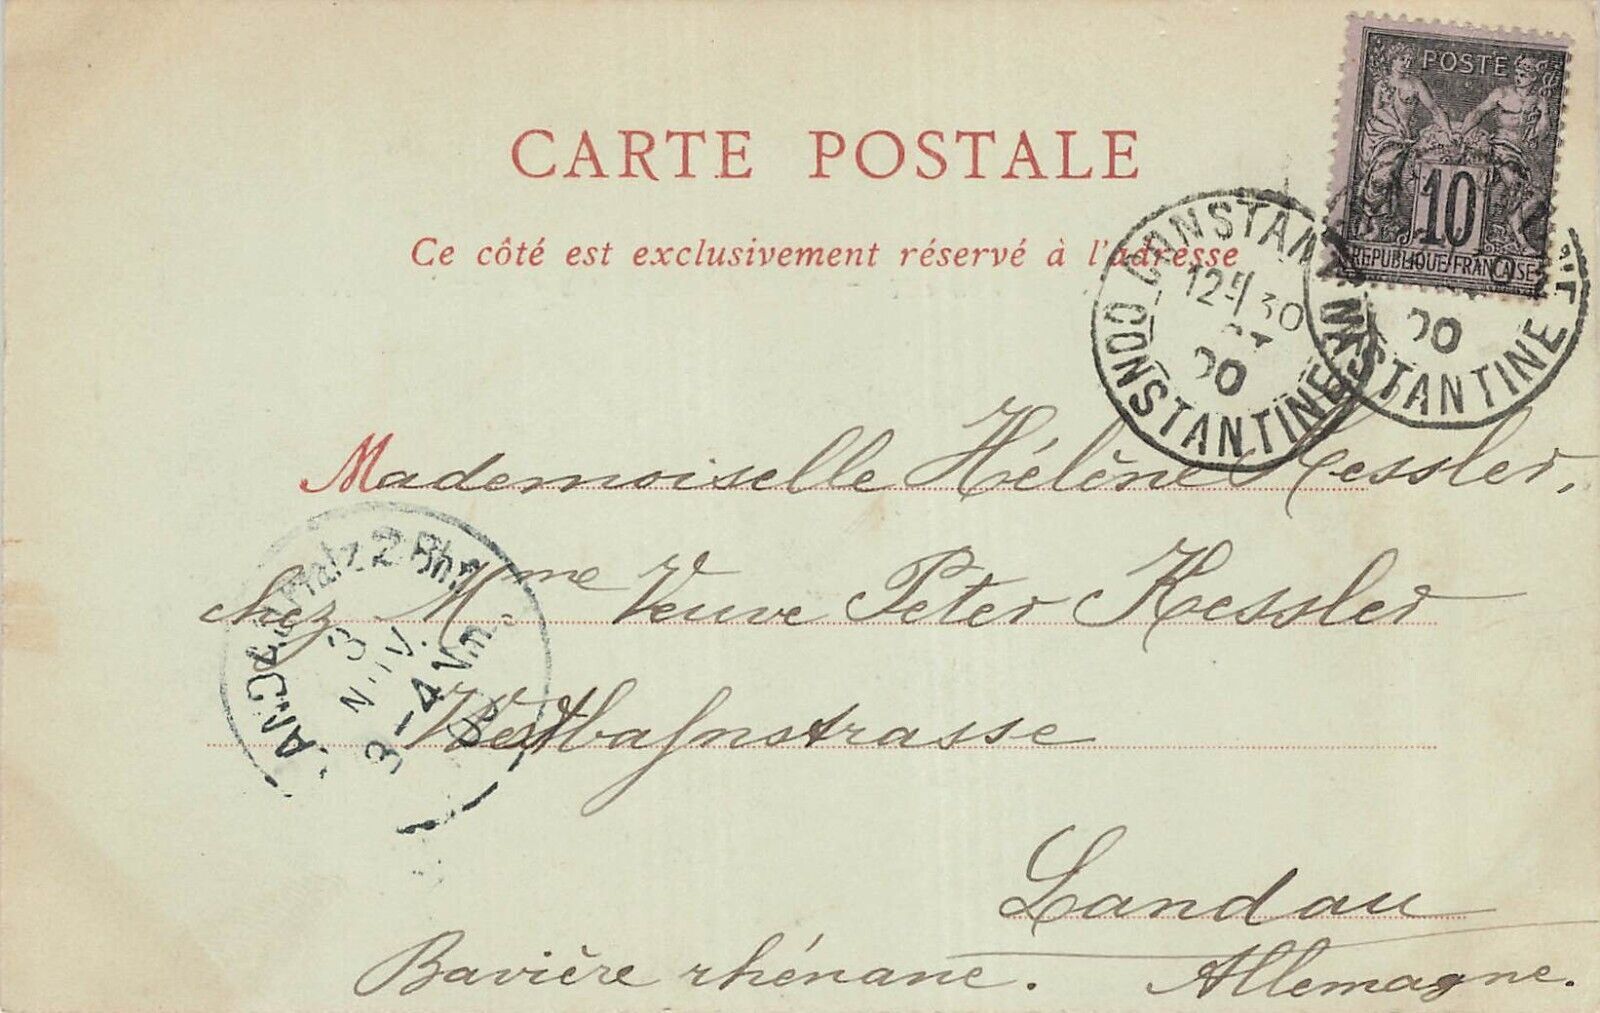 POSTE
10
REPUBLIQUE FRANCAISE
CARTE POSTALE
Ce côté est exclusivement réservé à l'adresse
CONSTANTINE
12 30
00
CONSTANTINE
STANTINE
00
Mademoiselle Hélène Kessler,
chez Mme. Veuve Peter Kessler
Westbahnstrasse
Landau
Bavière rhénane. Allemagne.
LANDAU Pfalz 2 Bhf.
3
NOV.
3-4 Vm